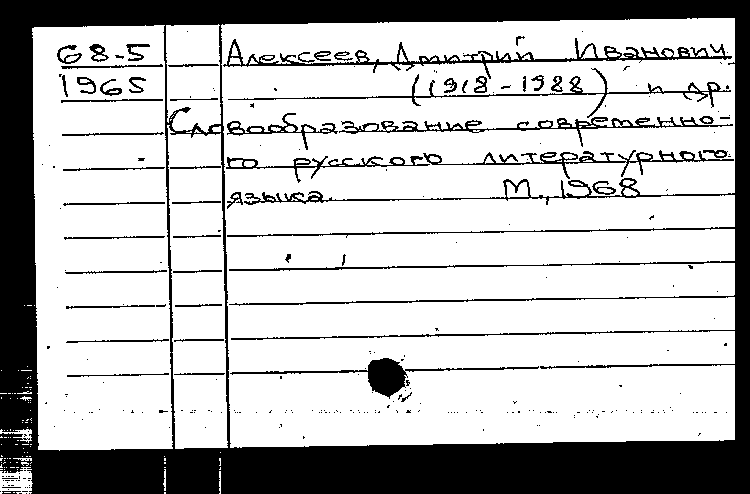 68-5 Алексеев, Дмитрий Иванович
1965 (1918-1988) и др.
Словообразование современно-
го русского литературного
языка. М., 1968